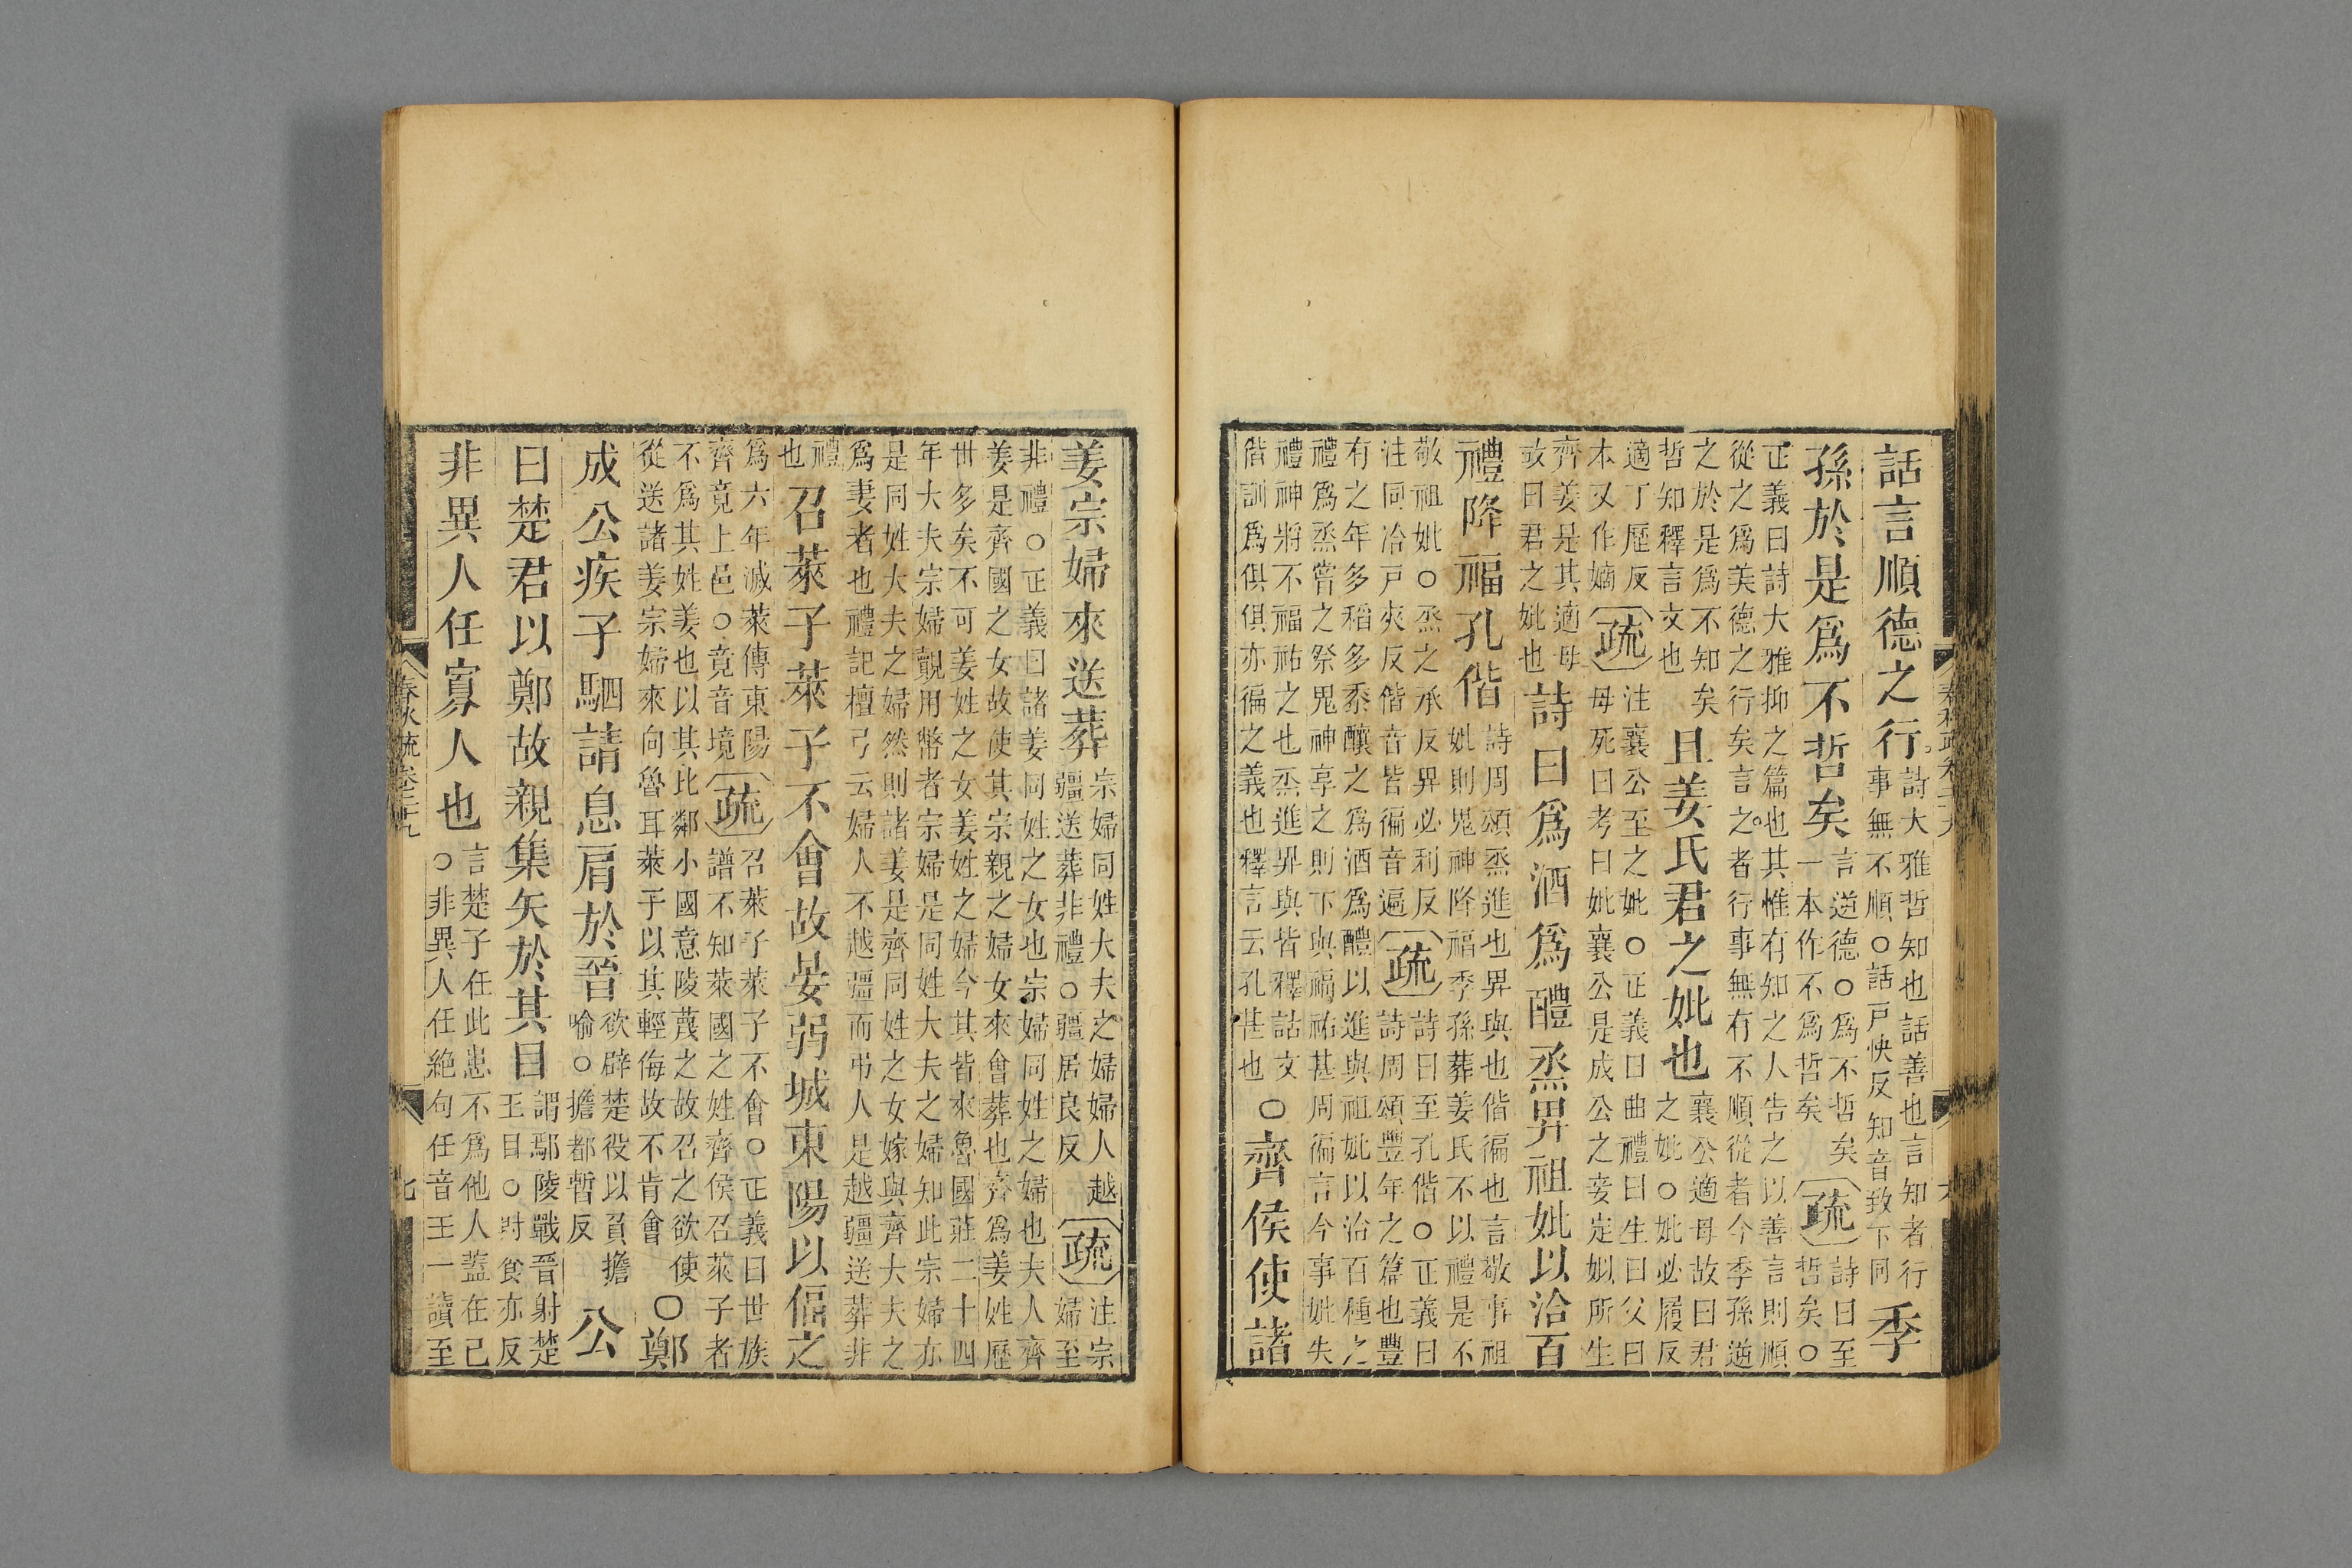 話言順德之行
詩大雅哲知也話善也言知者行
事無不順○話戸快反知音致下同
季
孫於是爲不哲矣
言逆德○爲不哲矣
一本作不爲哲矣
疏
詩曰至
哲矣○
正義曰詩大雅抑之篇也其惟有知之人告之以善言則順
從之爲美德之行矣言之者行事無有不順從者今季孫逆
之於是爲不知矣
哲知釋言文也
且姜氏君之妣也
襄公適母故曰君
之妣○妣必履反
適丁歷反
本又作嫡
疏
注襄公至之妣○正義曰曲禮曰生曰父曰
母死曰考曰妣襄公是成公之妾定姒所生
齊姜是其適母
故曰君之妣也
詩曰爲酒爲醴烝畀祖妣以洽百
禮降福孔偕
詩周頌烝進也畀與也偕徧也言敬事祖
妣則鬼神降福季孫葬姜氏不以禮是不
敬祖妣○烝之承反畀必利反
注同洽戸夾反偕音皆徧音遍
疏
詩曰至孔偕○正義曰
詩周頌豐年之篇也豐
有之年多稻多黍釀之爲酒爲醴以進與祖妣以治百種之
禮爲烝嘗之祭鬼神享之則下與福祐甚周徧言今事妣失
禮神將不福祐之也烝進畀與皆釋詁文
偕訓爲俱俱亦徧之義也釋言云孔甚也
○齊侯使諸
姜宗婦來送葬
宗婦同姓大夫之婦婦人越
疆送葬非禮○疆居良反
疏
注宗
婦至
非禮○正義曰諸姜同姓之女也宗婦同姓之婦也夫人齊
姜是齊國之女故使其宗親之婦女來會葬也齊爲姜姓歷
世多矣不可姜姓之女姜姓之婦今其皆來魯國莊二十四
年大夫宗婦覿用幣者宗婦是同姓大夫之婦知此宗婦亦
是同姓大夫之婦然則諸姜是齊同姓之女嫁與齊大夫之
爲妻者也禮記檀弓云婦人不越疆而弔人是越疆送葬非
禮
也
召萊子萊子不會故晏弱城東陽以偪之
爲六年滅萊傳東陽
齊竟上邑○竟音境
疏
召萊子萊子不會○正義曰世族
譜不知萊國之姓齊侯召萊子者
不爲其姓姜也以其比鄰小國意陵蔑之故召之欲使
從送諸姜宗婦來向魯耳萊子以其輕侮故不肯會
○鄭
成公疾子駟請息肩於晉
欲辟楚役以負擔
喻○擔都暫反
公
曰楚君以鄭故親集矢於其目
謂鄢陵戰晉射楚
王目○射食亦反
非異人任寡人也
言楚子任此患不爲他人蓋在己
○非異人任絶句任音壬一讀至
春秋疏卷二十九
七